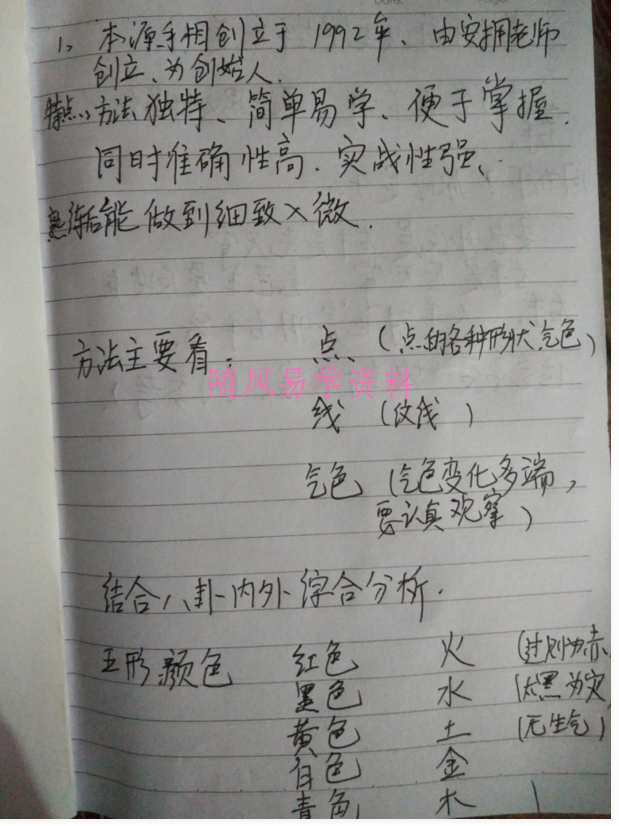 1、本源手相创立于1992年、由安拥老师
创立、为创始人.
特点、方法独特、简单易学、便于掌握.
同时准确性高.实战性强、
熟练后能做到细致入微.
方法主要看: 点 (点的各种形状气色)
随风易学资料
线 (纹线)
气色 (气色变化多端,
要认真观察)
结合八卦内外综合分析.
五形颜色 红色 火 (过则为赤
墨色 水 (太黑为灾
黄色 土 (无生气)
白色 金
青色 木